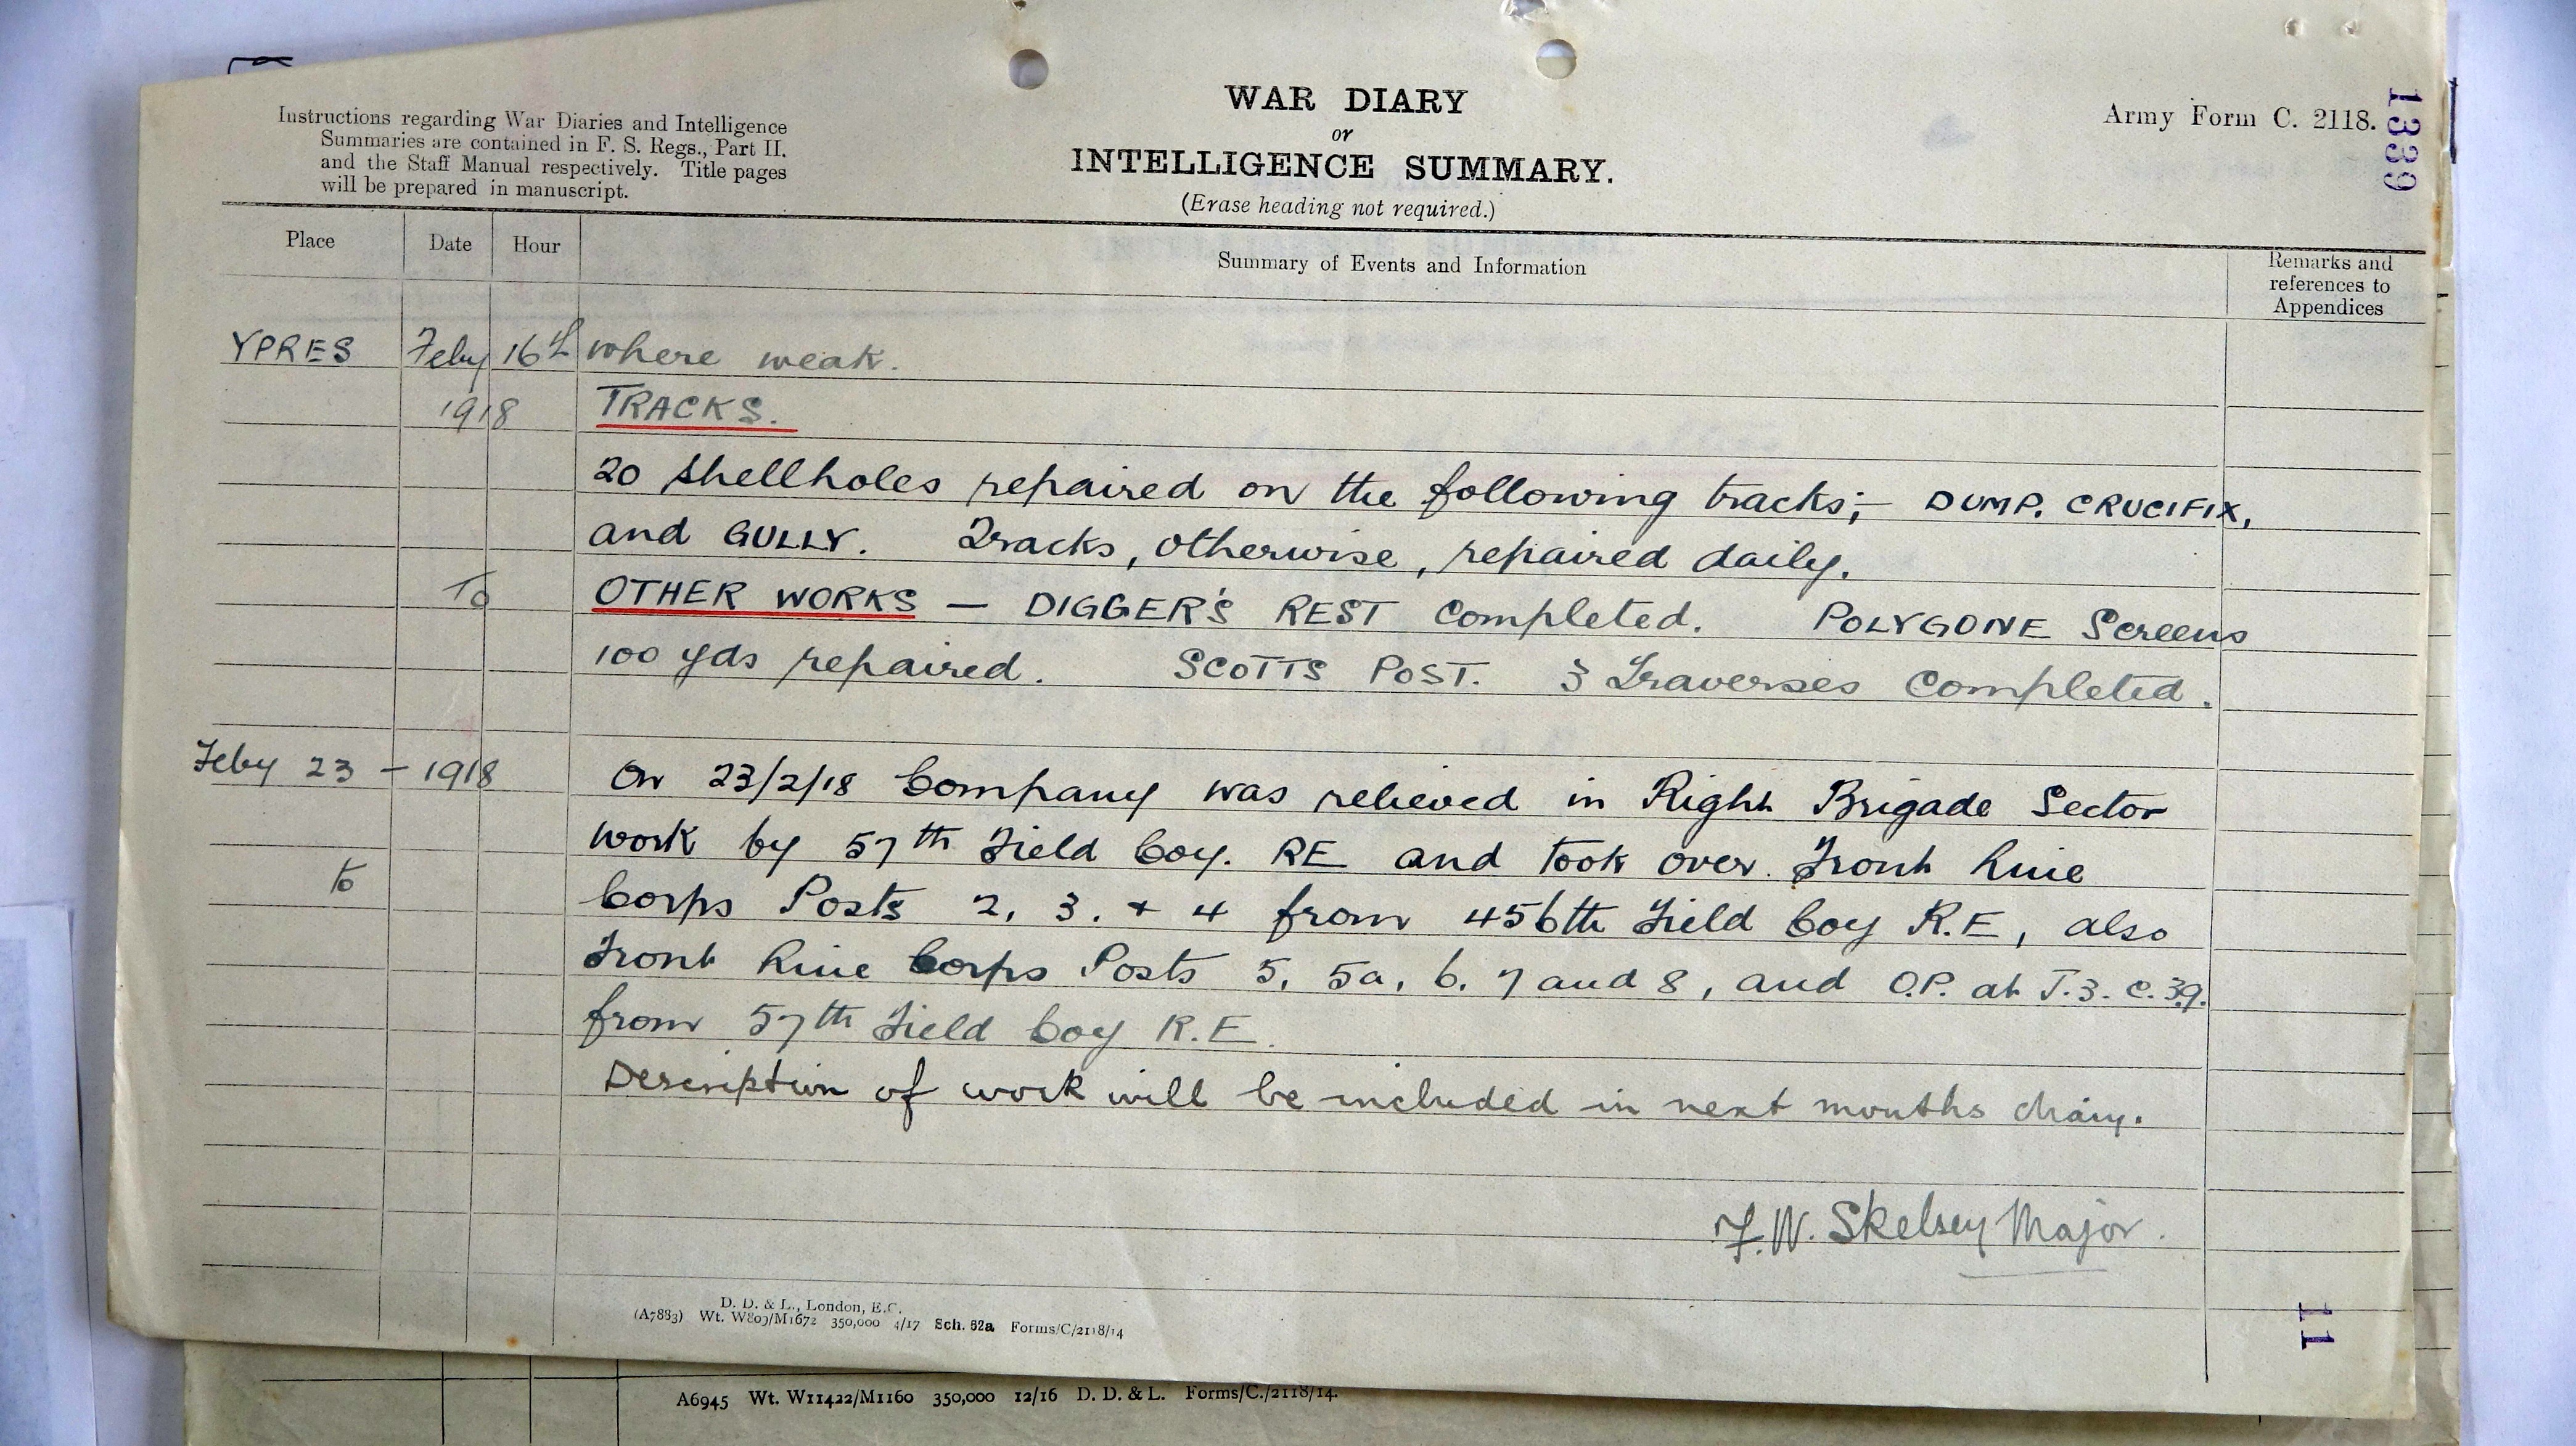 Instructions regarding War Diaries and Intelligence
Summaries are contained in F. S. Regs., Part II.
and the Staff Manual respectively. Title pages
will be prepared in manuscript.
WAR DIARY
or
INTELLIGENCE SUMMARY.
(Erase heading not required.)
Army Form C. 2118.
1339
Place Date Hour Summary of Events and Information Remarks and
references to
Appendices
YPRES Feby 16th where weak.
1918 TRACKS.
20 shellholes repaired on the following tracks;- DUMP. CRUCIFIX,
and GULLY. Tracks, otherwise, repaired daily.
To OTHER WORKS — DIGGER'S REST Completed. POLYGONE Screens
100 yds repaired. SCOTTS POST. 3 Traverses Completed.
Feby 23 - 1918 On 23/2/18 Company was relieved in Right Brigade Sector
work by 57th Field Coy. RE and took over Front Line
to Corps Posts 2, 3. + 4 from 456th Field Coy R.E, also
Front Line Corps Posts 5, 5a, 6. 7 and 8, and O.P. at J.3.c.3.9.
from 57th Field Coy R.E.
Description of work will be included in next months diary.
F.W. Skelsey Major.
D. D. & L., London, E.C.
(A7883) Wt. W809/M1672 350,000 4/17 Sch. 82a Forms/C/2118/14
11
A6945 Wt. W11422/M1160 350,000 12/16 D. D. & L. Forms/C./2118/14.